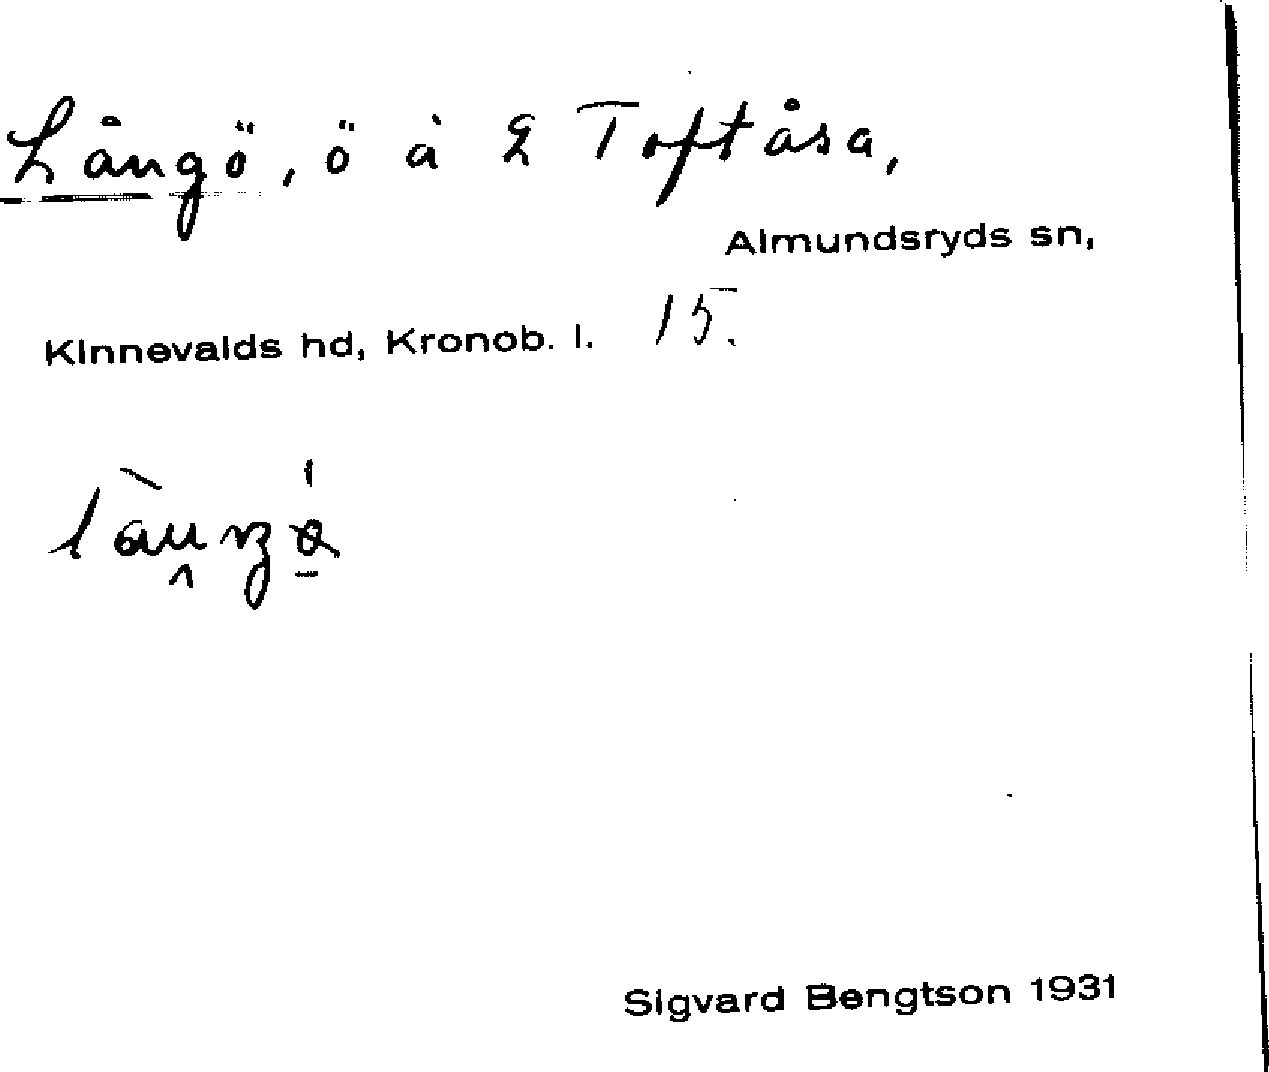 Långö, ö à Toftåsa,
Almundsryds sn,
Kinnevalds hd, Kronob. l. 15.
Sigvard Bengtson 1931